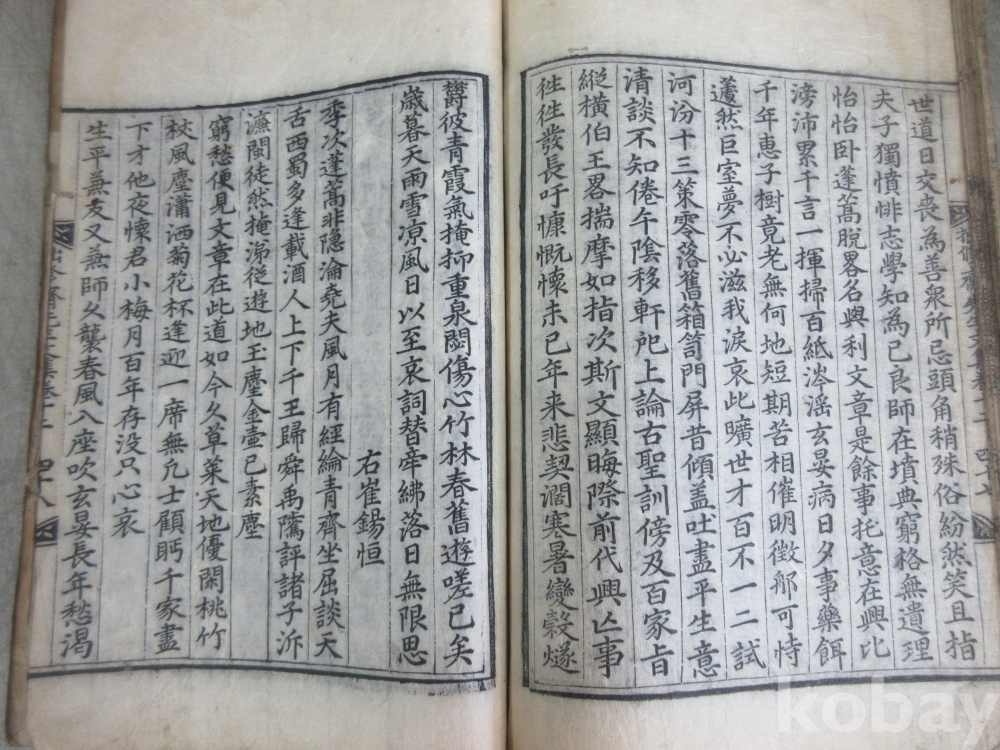 世道日交喪為善衆所忌頭角稍殊俗紛然笑且指
夫子獨憤悱志學知為己良師在墳典窮格無遺理
怡怡臥蓬蒿脫畧名與利文章是餘事托意在興比
滂沛累千言一揮掃百紙涔滛玄晏病日夕事藥餌
千年惠子樹竟老無何地短期苦相催明徵郍可恃
蘧然巨室夢不必滋我淚哀此曠世才百不一二試
河汾十三策零落舊箱笥門屏昔傾盖吐盡平生意
清談不知倦午陰移軒戺上論古聖訓傍及百家旨
縱橫伯王畧揣摩如指次斯文顯晦際前代興亾事
徃徃發長吁慷慨懷未已年来悲契濶寒暑變穀燧
欝彼青霞氣掩抑重泉閟傷心竹林春舊遊嗟已矣
歲暮天雨雪凉風日以至哀詞替牽紼落日無限思
右崔錫恒
季次蓬蒿非隐淪堯夫風月有經綸青齊坐屈談天
舌西蜀多逢載酒人上下千王歸舜禹隲評諸子泝
濂閩徒然掩涕從遊地王塵金壷已素塵
窮愁便見文章在此道如今久草菜天地優閑桃竹
杖風塵瀟洒菊花杯逢迎一席無凢士顧眄千家盡
下才他夜懷君小梅月百年存没只心哀
生平無友又無師久襲春風入座吹玄晏長年愁渴
四十七
四十八